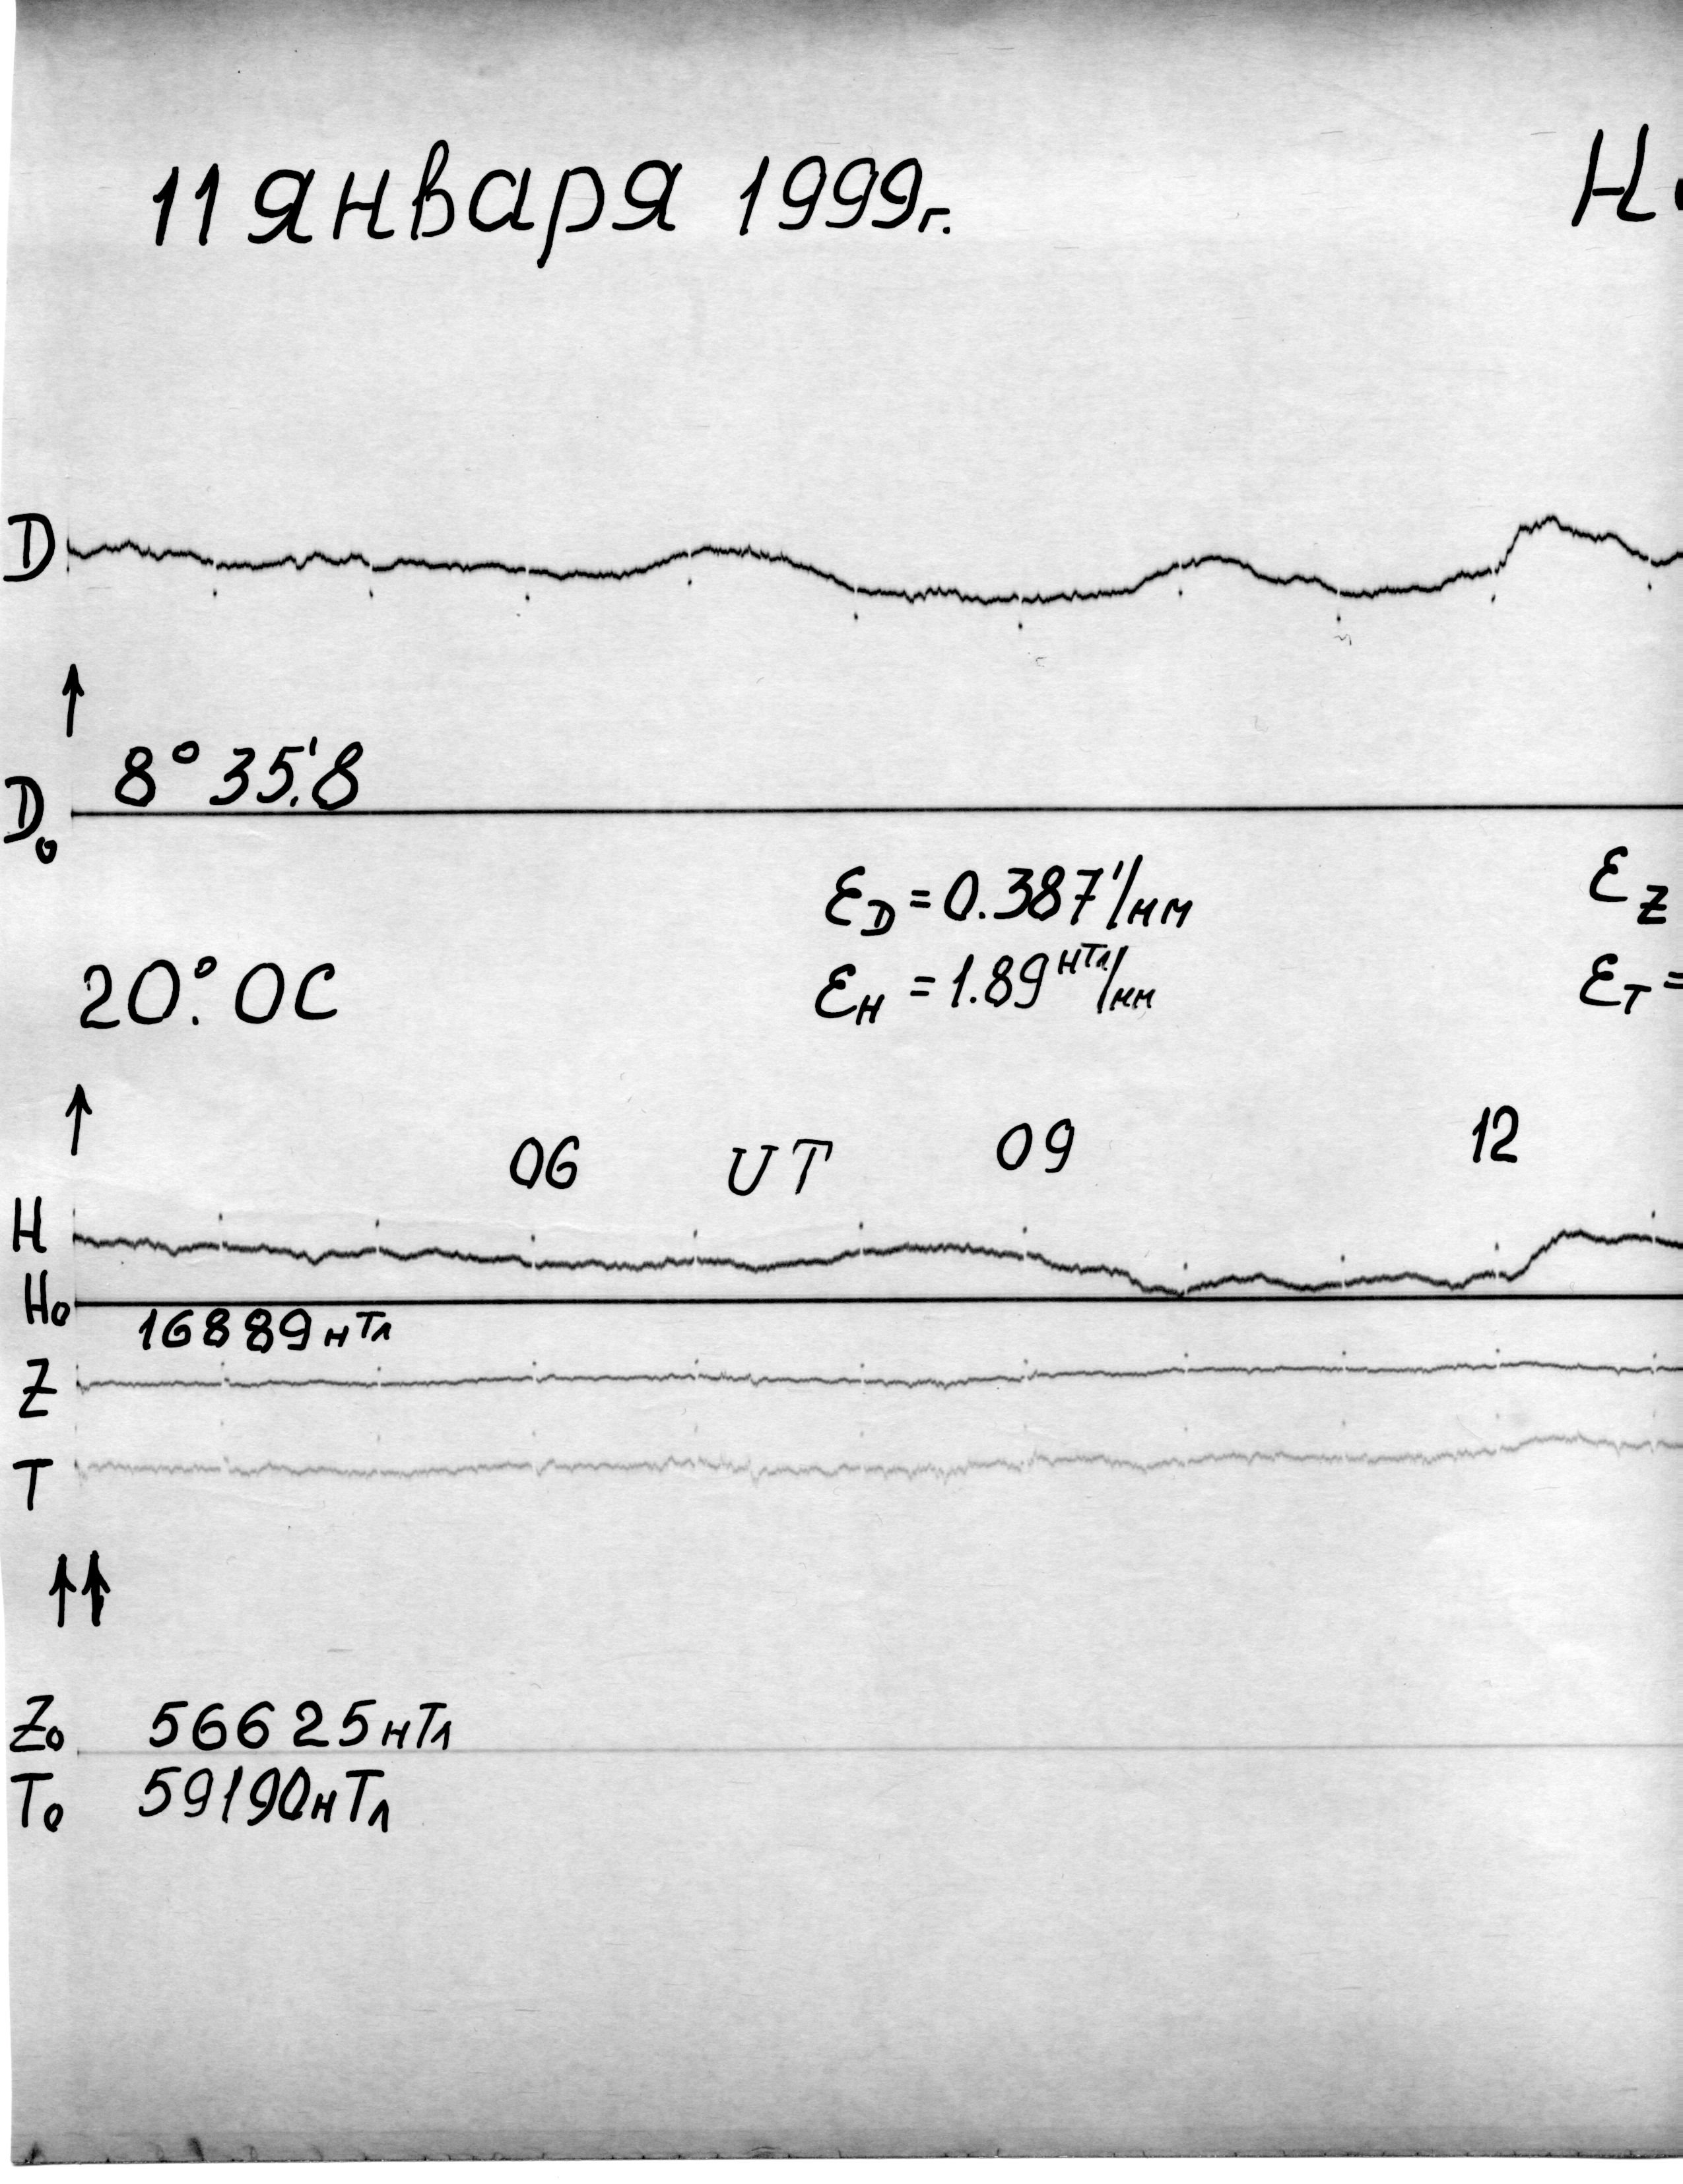 11 января 1999г.
D
8° 35.'8
D₀
ε_D = 0.387'/мм
ε_Z
20.°0C
ε_H = 1.89 нТл/мм
ε_T =
06 UT 09 12
H
H₀
16889 нТл
Z
T
Z₀ 56625 нТл
T₀ 59190 нТл